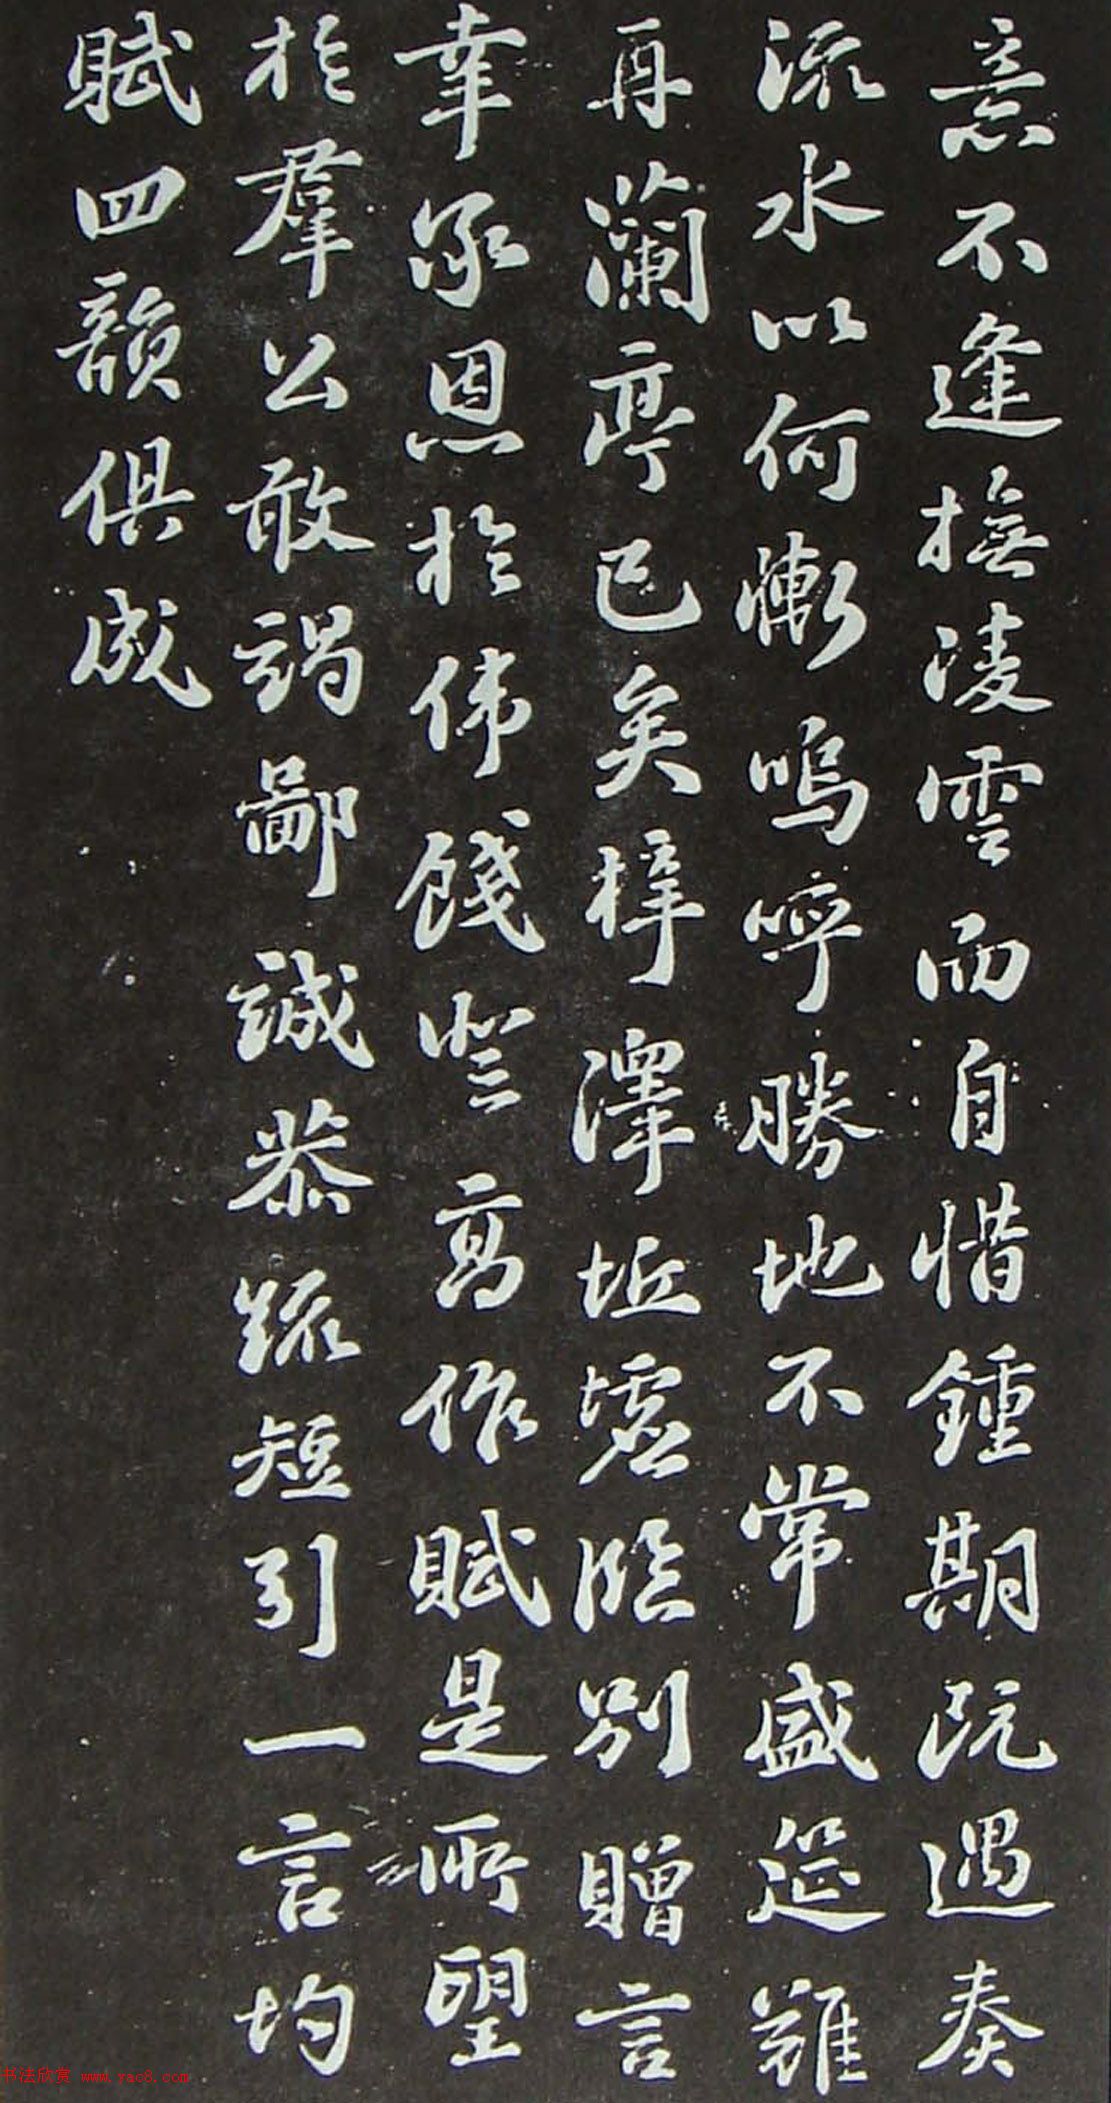 意不逢撫凌雲而自惜鍾期既遇奏
流水以何慚嗚呼勝地不常盛筵難
再蘭亭已矣梓澤丘墟臨別贈言
幸承恩於偉餞登高作賦是所望
於群公敢竭鄙誠恭疏短引一言均
賦四韻俱成
书法欣赏 www.yac8.com